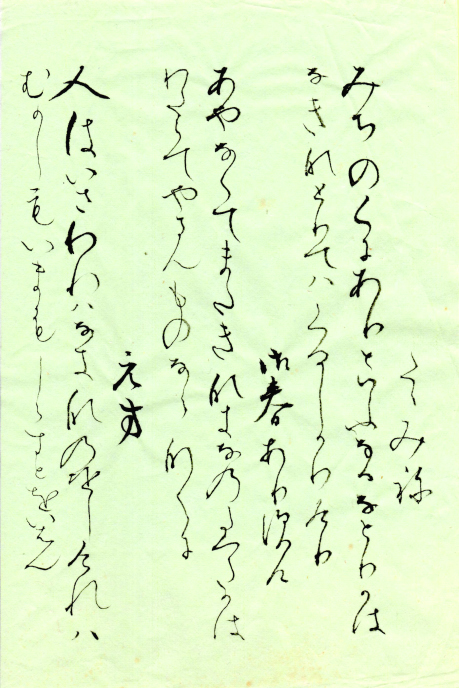 たゝみ祢
みちのくにありといふなるなとりかは
なき那とりてハくるしかりけり
御春ありすけ
あやなくてまたき那きな乃たつたかは
わたらてやまんものなら那くに
元方
人はいさわれハなき那乃をしけれハ
むかしもいまもしらすとをいはん